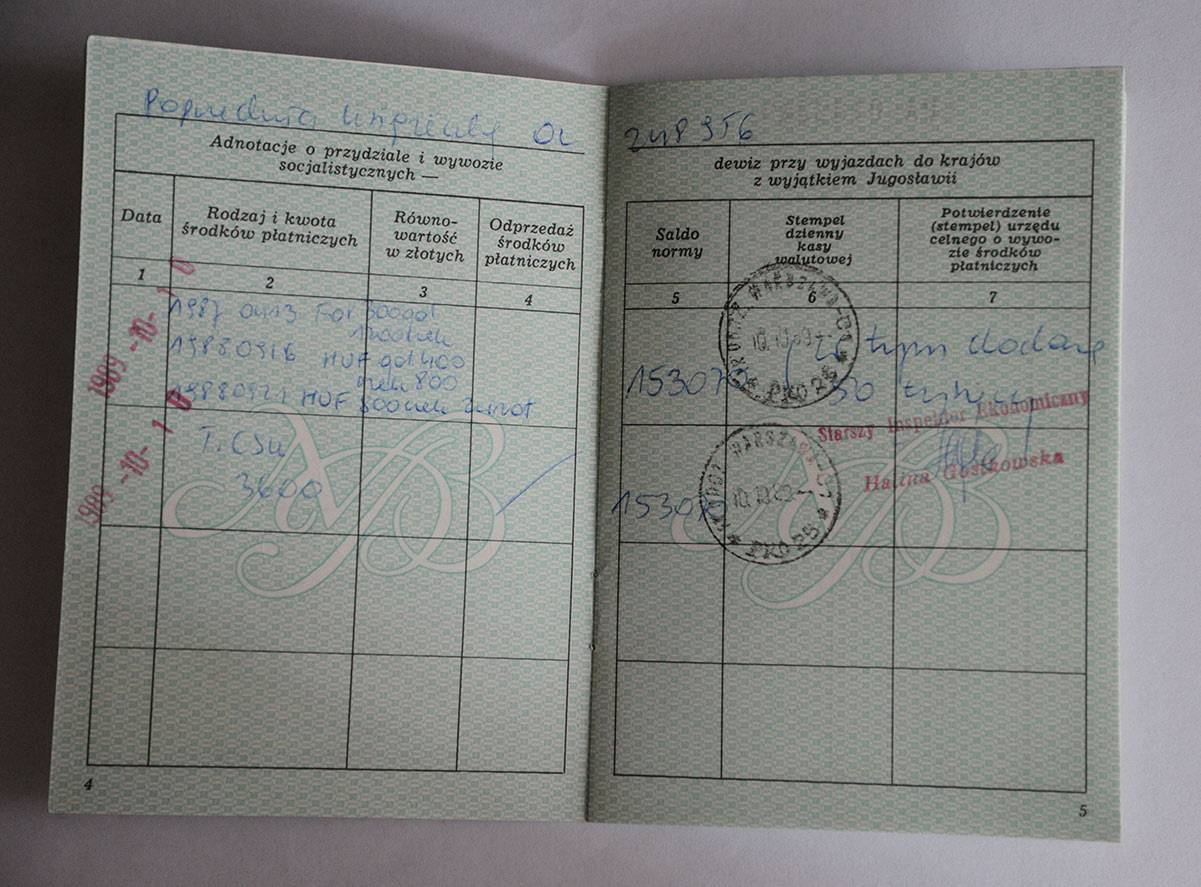 Adnotacje o przydziale i wywozie
socjalistycznych —
Data
Rodzaj i kwota
środków płatniczych
Równo-
wartość
w złotych
Odprzedaż
środków
płatniczych
1
2
3
4
1989 -10- 1 0
1987
300 got
19880916 HUF got 400
800
19880921 HUF 800
1989 -10- 1 0
T. CSU
3600
4
248956
dewiz przy wyjazdach do krajów
z wyjątkiem Jugosławii
Saldo
normy
Stempel
dzienny
kasy
walutowej
Potwierdzenie
(stempel) urzędu
celnego o wywo-
zie środków
płatniczych
5
6
7
WARSZAWA
10.10.89
PKO 25
w tym dodaję
153070
30 tysięcy
Starszy Inspektor Ekonomiczny
Halina Gostkowska
153070
WARSZAWA
10.10.89
PKO 25
5